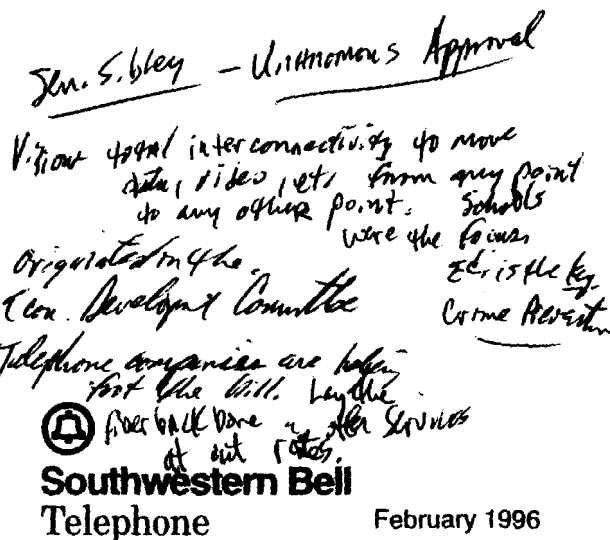 Sen. Sibley — Unanomous Approval
Vision total interconnectivity to move
data, video, etc from any point
to any other point. Schools
were the focus
originated in the
Ed. is the key.
Econ. Development Committee
Crime Prevention
Telephone companies are helping
foot the bill. Lay the
fiber back bone & offer services
at cut rates.
Southwestern Bell
Telephone
February 1996